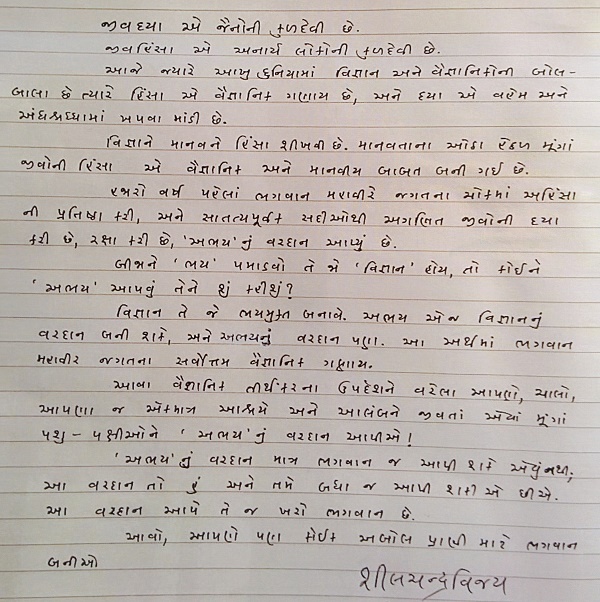 જીવદયા એ જૈનોની કુળદેવી છે.
જીવહિંસા એ અનાર્ય લોકોની કુળદેવી છે.
આજે જ્યારે આખુ દુનિયામાં વિજ્ઞાન અને વૈજ્ઞાનિકોની બોલ-
બાલા છે ત્યારે હિંસા એ વૈજ્ઞાનિક ગણાય છે, અને દયા એ વહેમ અને
અંધશ્રધ્ધામાં ખપવા માંડી છે.
વિજ્ઞાને માનવને હિંસા શીખવી છે. માનવતાના ઓઠા હેઠળ મૂંગાં
જીવોની હિંસા એ વૈજ્ઞાનિક અને માનવીય બાબત બની ગઈ છે.
હજારો વર્ષ પહેલાં ભગવાન મહાવીરે જગતના ચોકમાં અહિંસા
ની પ્રતિષ્ઠા કરી, અને સાતત્યપૂર્વક સદીઓથી અગણિત જીવોની દયા
કરી છે, રક્ષા કરી છે, 'અભય'નું વરદાન આપ્યું છે.
બીજાને 'ભય' પમાડવો તે જો 'વિજ્ઞાન' હોય, તો કોઈને
'અભય' આપવું તેને શું કહીશું?
વિજ્ઞાન તે જે ભયમુક્ત બનાવે. અભય એ જ વિજ્ઞાનનું
વરદાન બની શકે, અને અભયનું વરદાન પણ. આ અર્થમાં ભગવાન
મહાવીર જગતના સર્વોત્તમ વૈજ્ઞાનિક ગણાય.
આવા વૈજ્ઞાનિક તીર્થંકરના ઉપદેશને વરેલા આપણે, ચાલો,
આપણા જ એકમાત્ર આશ્રયે અને આલંબને જીવતાં એવાં મૂંગાં
પશુ - પક્ષીઓને 'અભય'નું વરદાન આપીએ!
'અભય'નું વરદાન માત્ર ભગવાન જ આપી શકે એવું નથી;
આ વરદાન તો હું અને તમે બધા જ આપી શકીએ છીએ.
આ વરદાન આપે તે જ ખરો ભગવાન છે.
આવો, આપણે પણ કોઈક અબોલ પ્રાણી માટે ભગવાન
બનીએ
શીલચન્દ્રવિજય